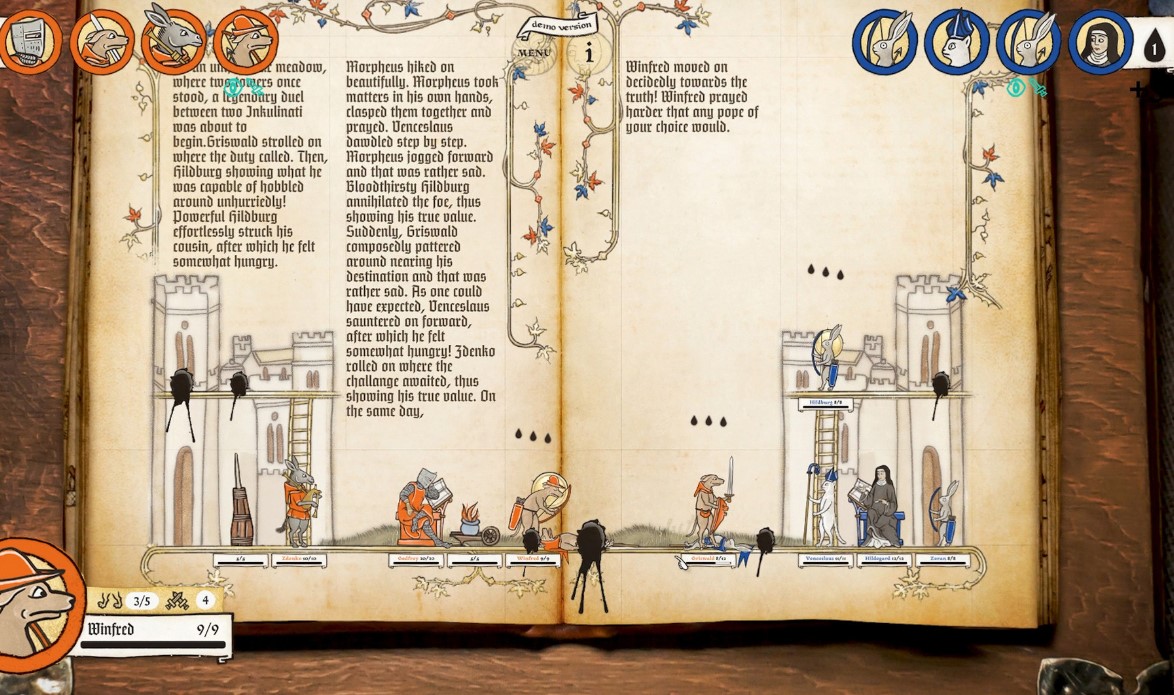 demo version
MENU
i
1
meadow,
where two towers once
stood, a legendary duel
between two Inkulinati
was about to
begin.Griswald strolled on
where the duty called. Then,
Hildburg showing what he
was capable of hobbled
around unhurriedly!
Powerful Hildburg
effortlessly struck his
cousin, after which he felt
somewhat hungry.
Morpheus hiked on
beautifully. Morpheus took
matters in his own hands,
clasped them together and
prayed. Venceslaus
dawdled step by step.
Morpheus jogged forward
and that was rather sad.
Bloodthirsty Hildburg
annihilated the foe, thus
showing his true value.
Suddenly, Griswald
composedly pattered
around nearing his
destination and that was
rather sad. As one could
have expected, Venceslaus
sauntered on forward,
after which he felt
somewhat hungry! Zdenko
rolled on where the
challange awaited, thus
showing his true value. On
the same day,
Winfred moved on
decidedly towards the
truth! Winfred prayed
harder that any pope of
your choice would.
Hildburg 8/8
Zdenko 10/10
Winfred 9/9
Griswald
Venceslaus
Hildegard
3/5
4
Winfred 9/9